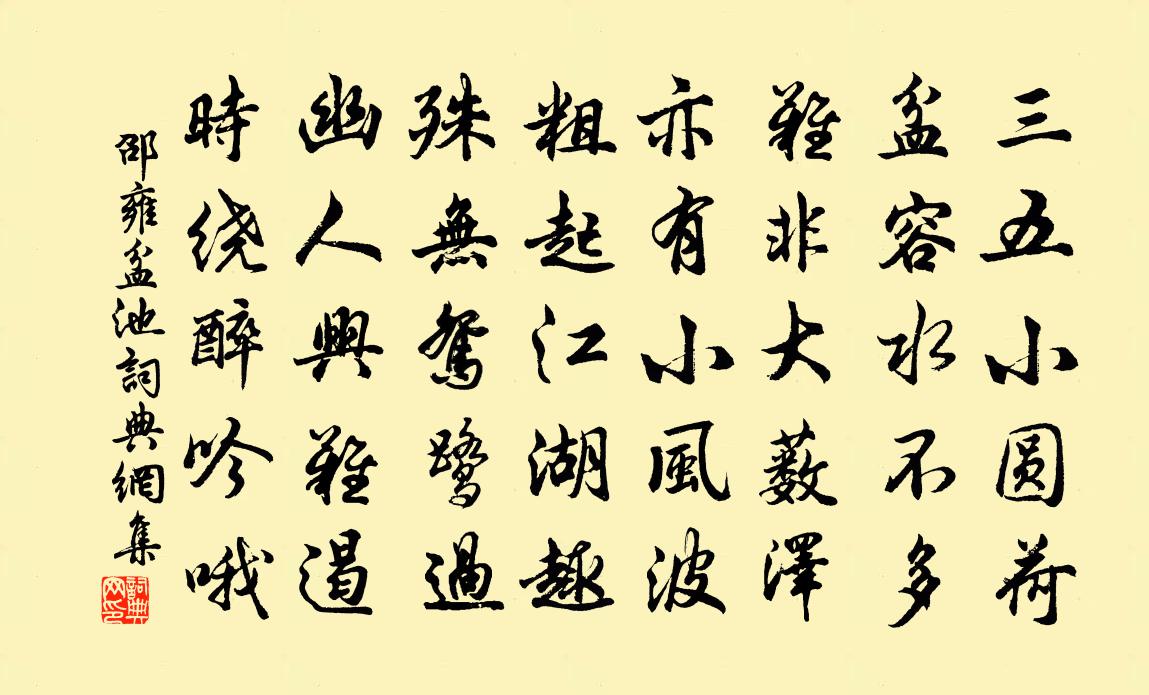 三五小圆荷
盆容水不多
雖非大藪澤
亦有小風波
粗起江湖趣
殊無鴛鷺過
幽人興難遏
時绕醉吟哦
邵雍盆池詞典網集
詞典
网印